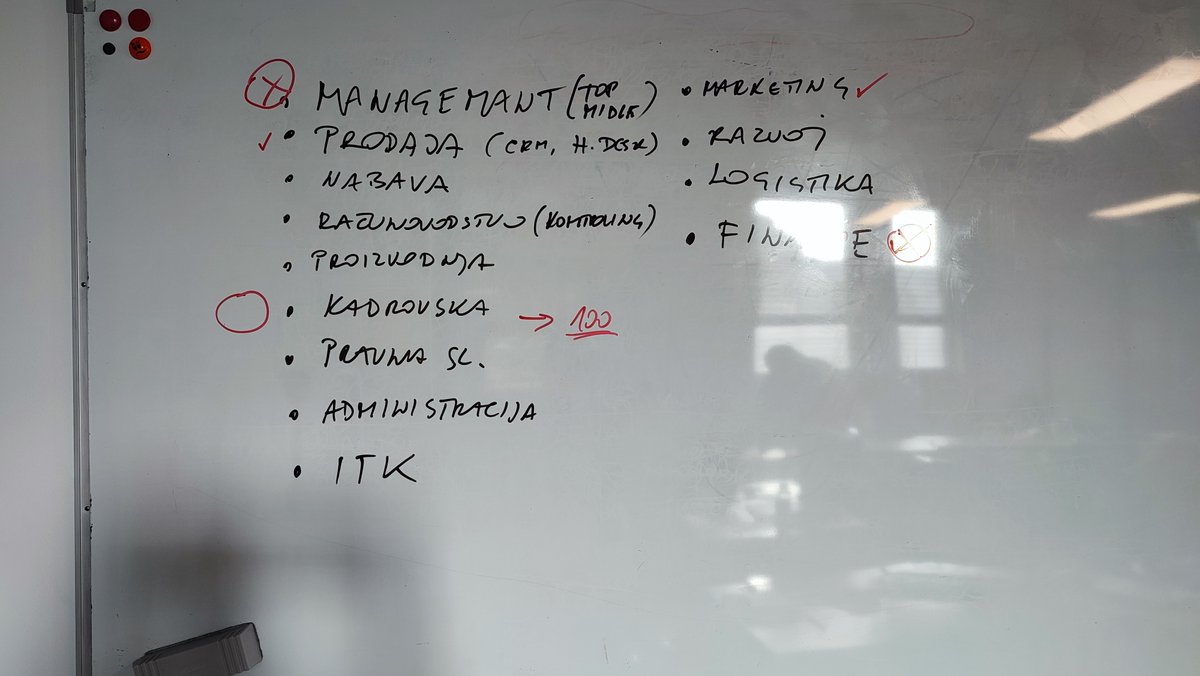 MANAGEMANT (TOP
MIDLE)
PRODAJA (CRM, H. DESK)
NABAVA
RAČUNOVODSTVO (KONTROLING)
PROIZVODNJA
KADROVSKA → 100
PRAVNA SL.
ADMINISTRACIJA
ITK
MARKETING ✓
RAZVOJ
LOGISTIKA